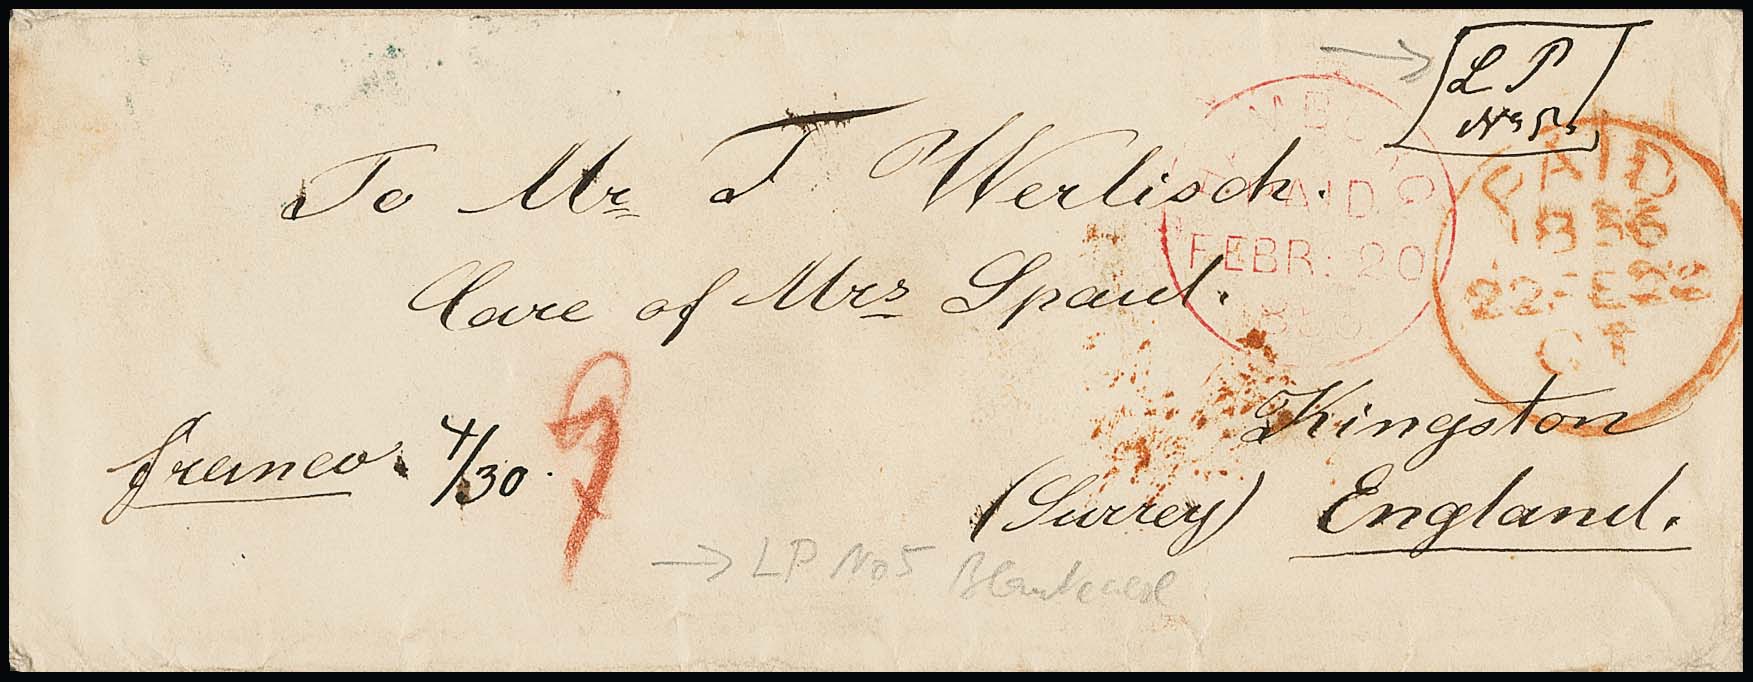 L P
No 5
To Mr T Werlisch.
Care of Mrs Spaul.
Kingston
(Surrey) England.
franco. 4/30.
PAID
FEBR: 20
PAID
1856
22 FE 22
→ LP No 5 Blankenese